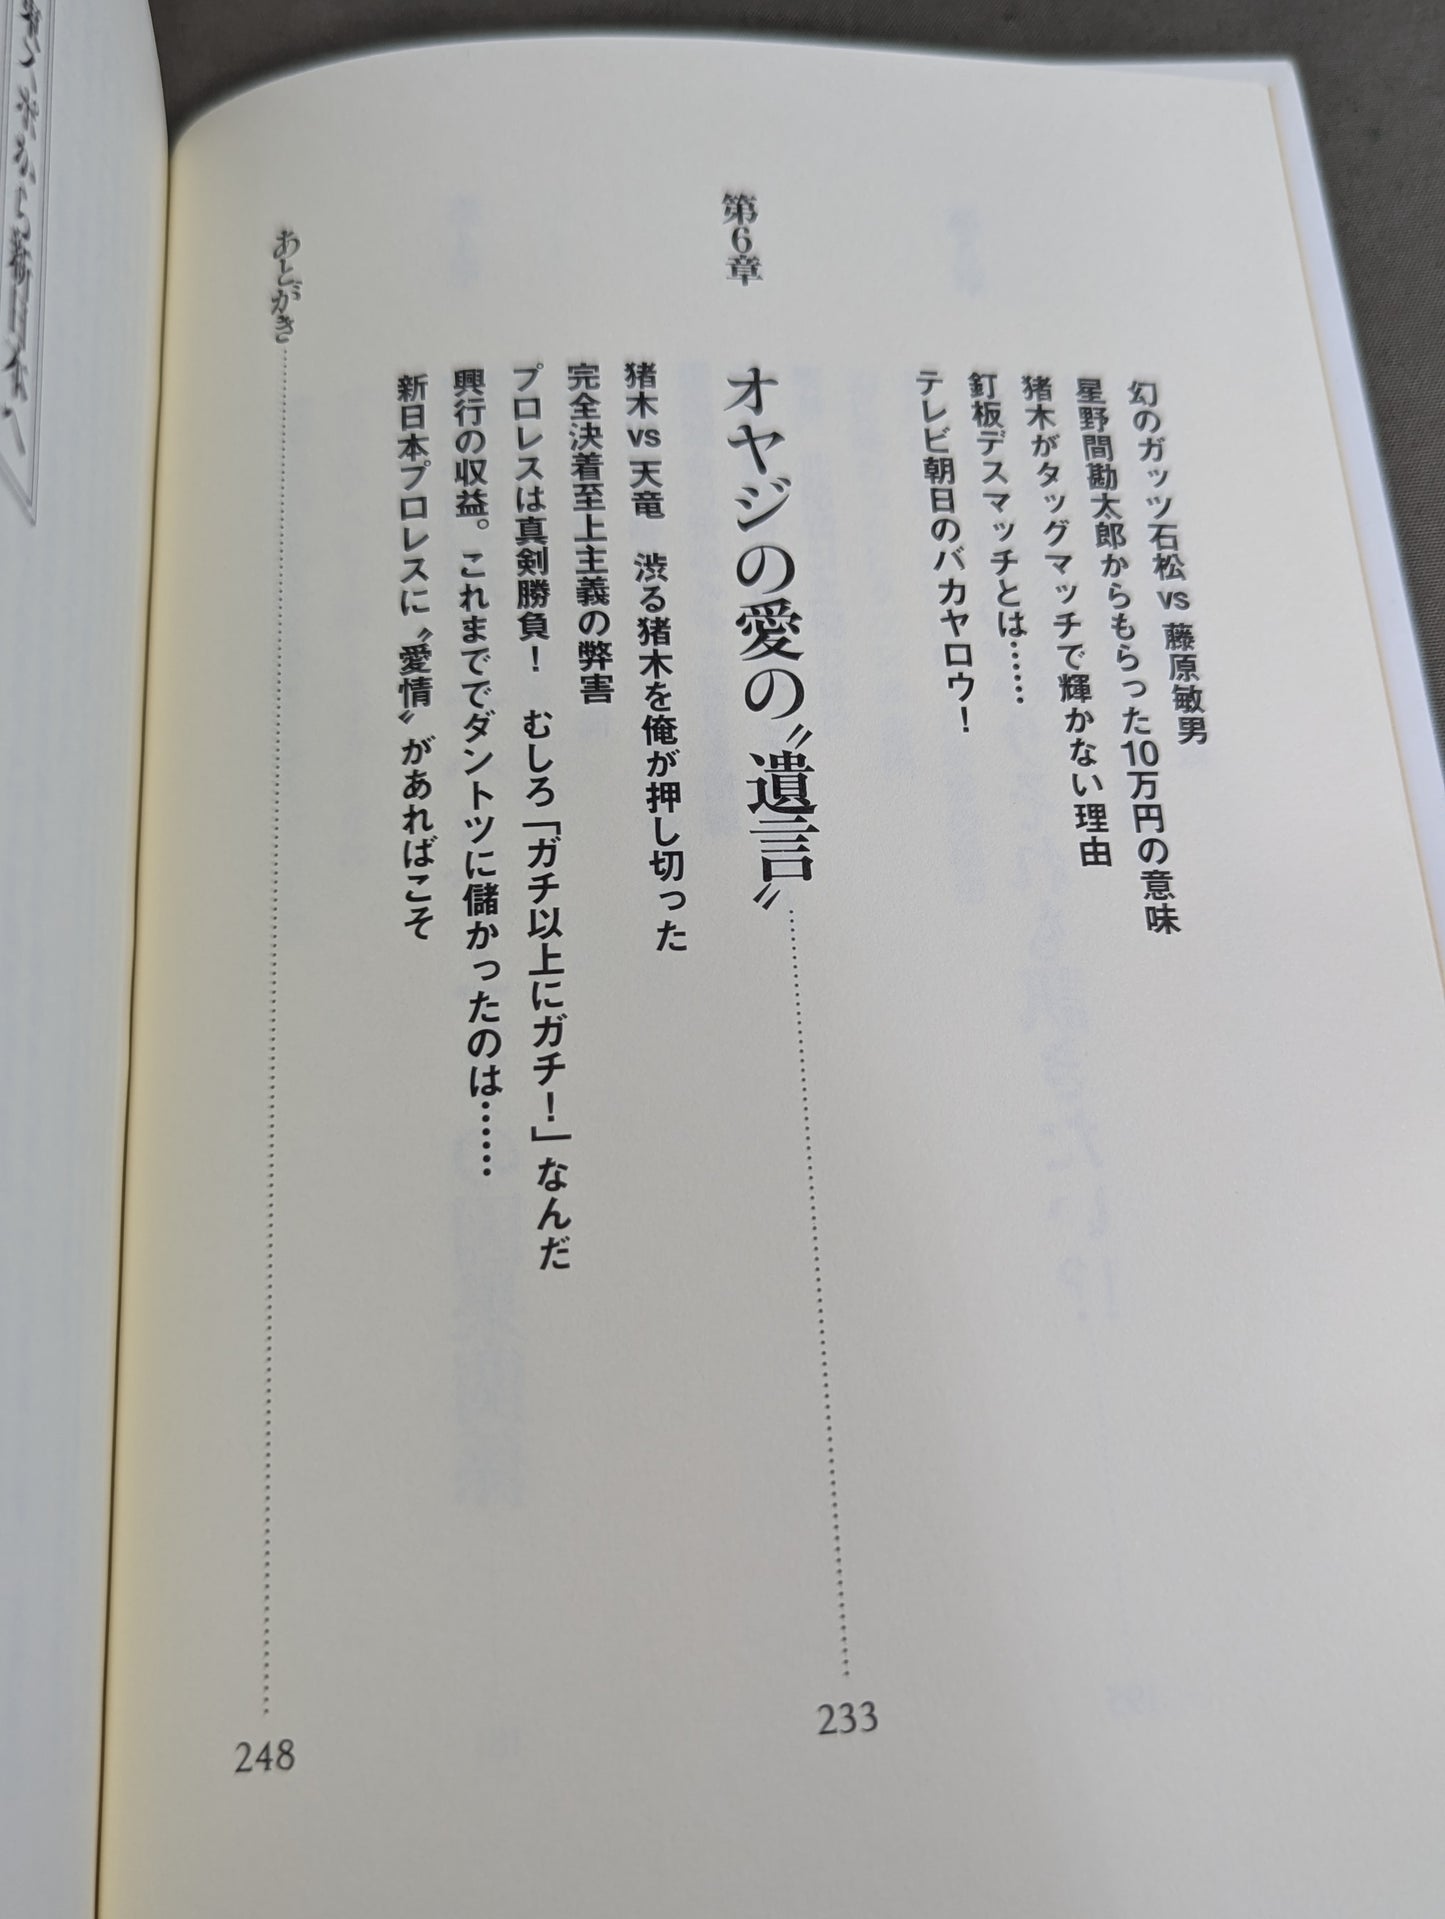 幻のガッツ石松 vs 藤原敏男
星野間勘太郎からもらった10万円の意味
猪木がタッグマッチで輝かない理由
釘板デスマッチとは……
テレビ朝日のバカヤロウ！
第6章 オヤジの愛の〝遺言〟 233
猪木 vs 天竜　渋る猪木を俺が押し切った
完全決着至上主義の弊害
プロレスは真剣勝負！　むしろ「ガチ以上にガチ！」なんだ
興行の収益。これまででダントツに儲かったのは……
新日本プロレスに〝愛情〟があればこそ
あとがき 248